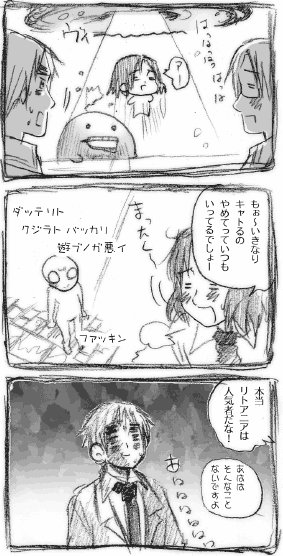 もぉ〜いきなり
キャトるの
やめてっていつも
いってるでしょ
まったく〜
ダッテリト
クジラト バッカリ
遊ブノガ悪イ
ファッキン
本当
リトアニアは
人気者だな!
あはは
そんなこと
ないですよ